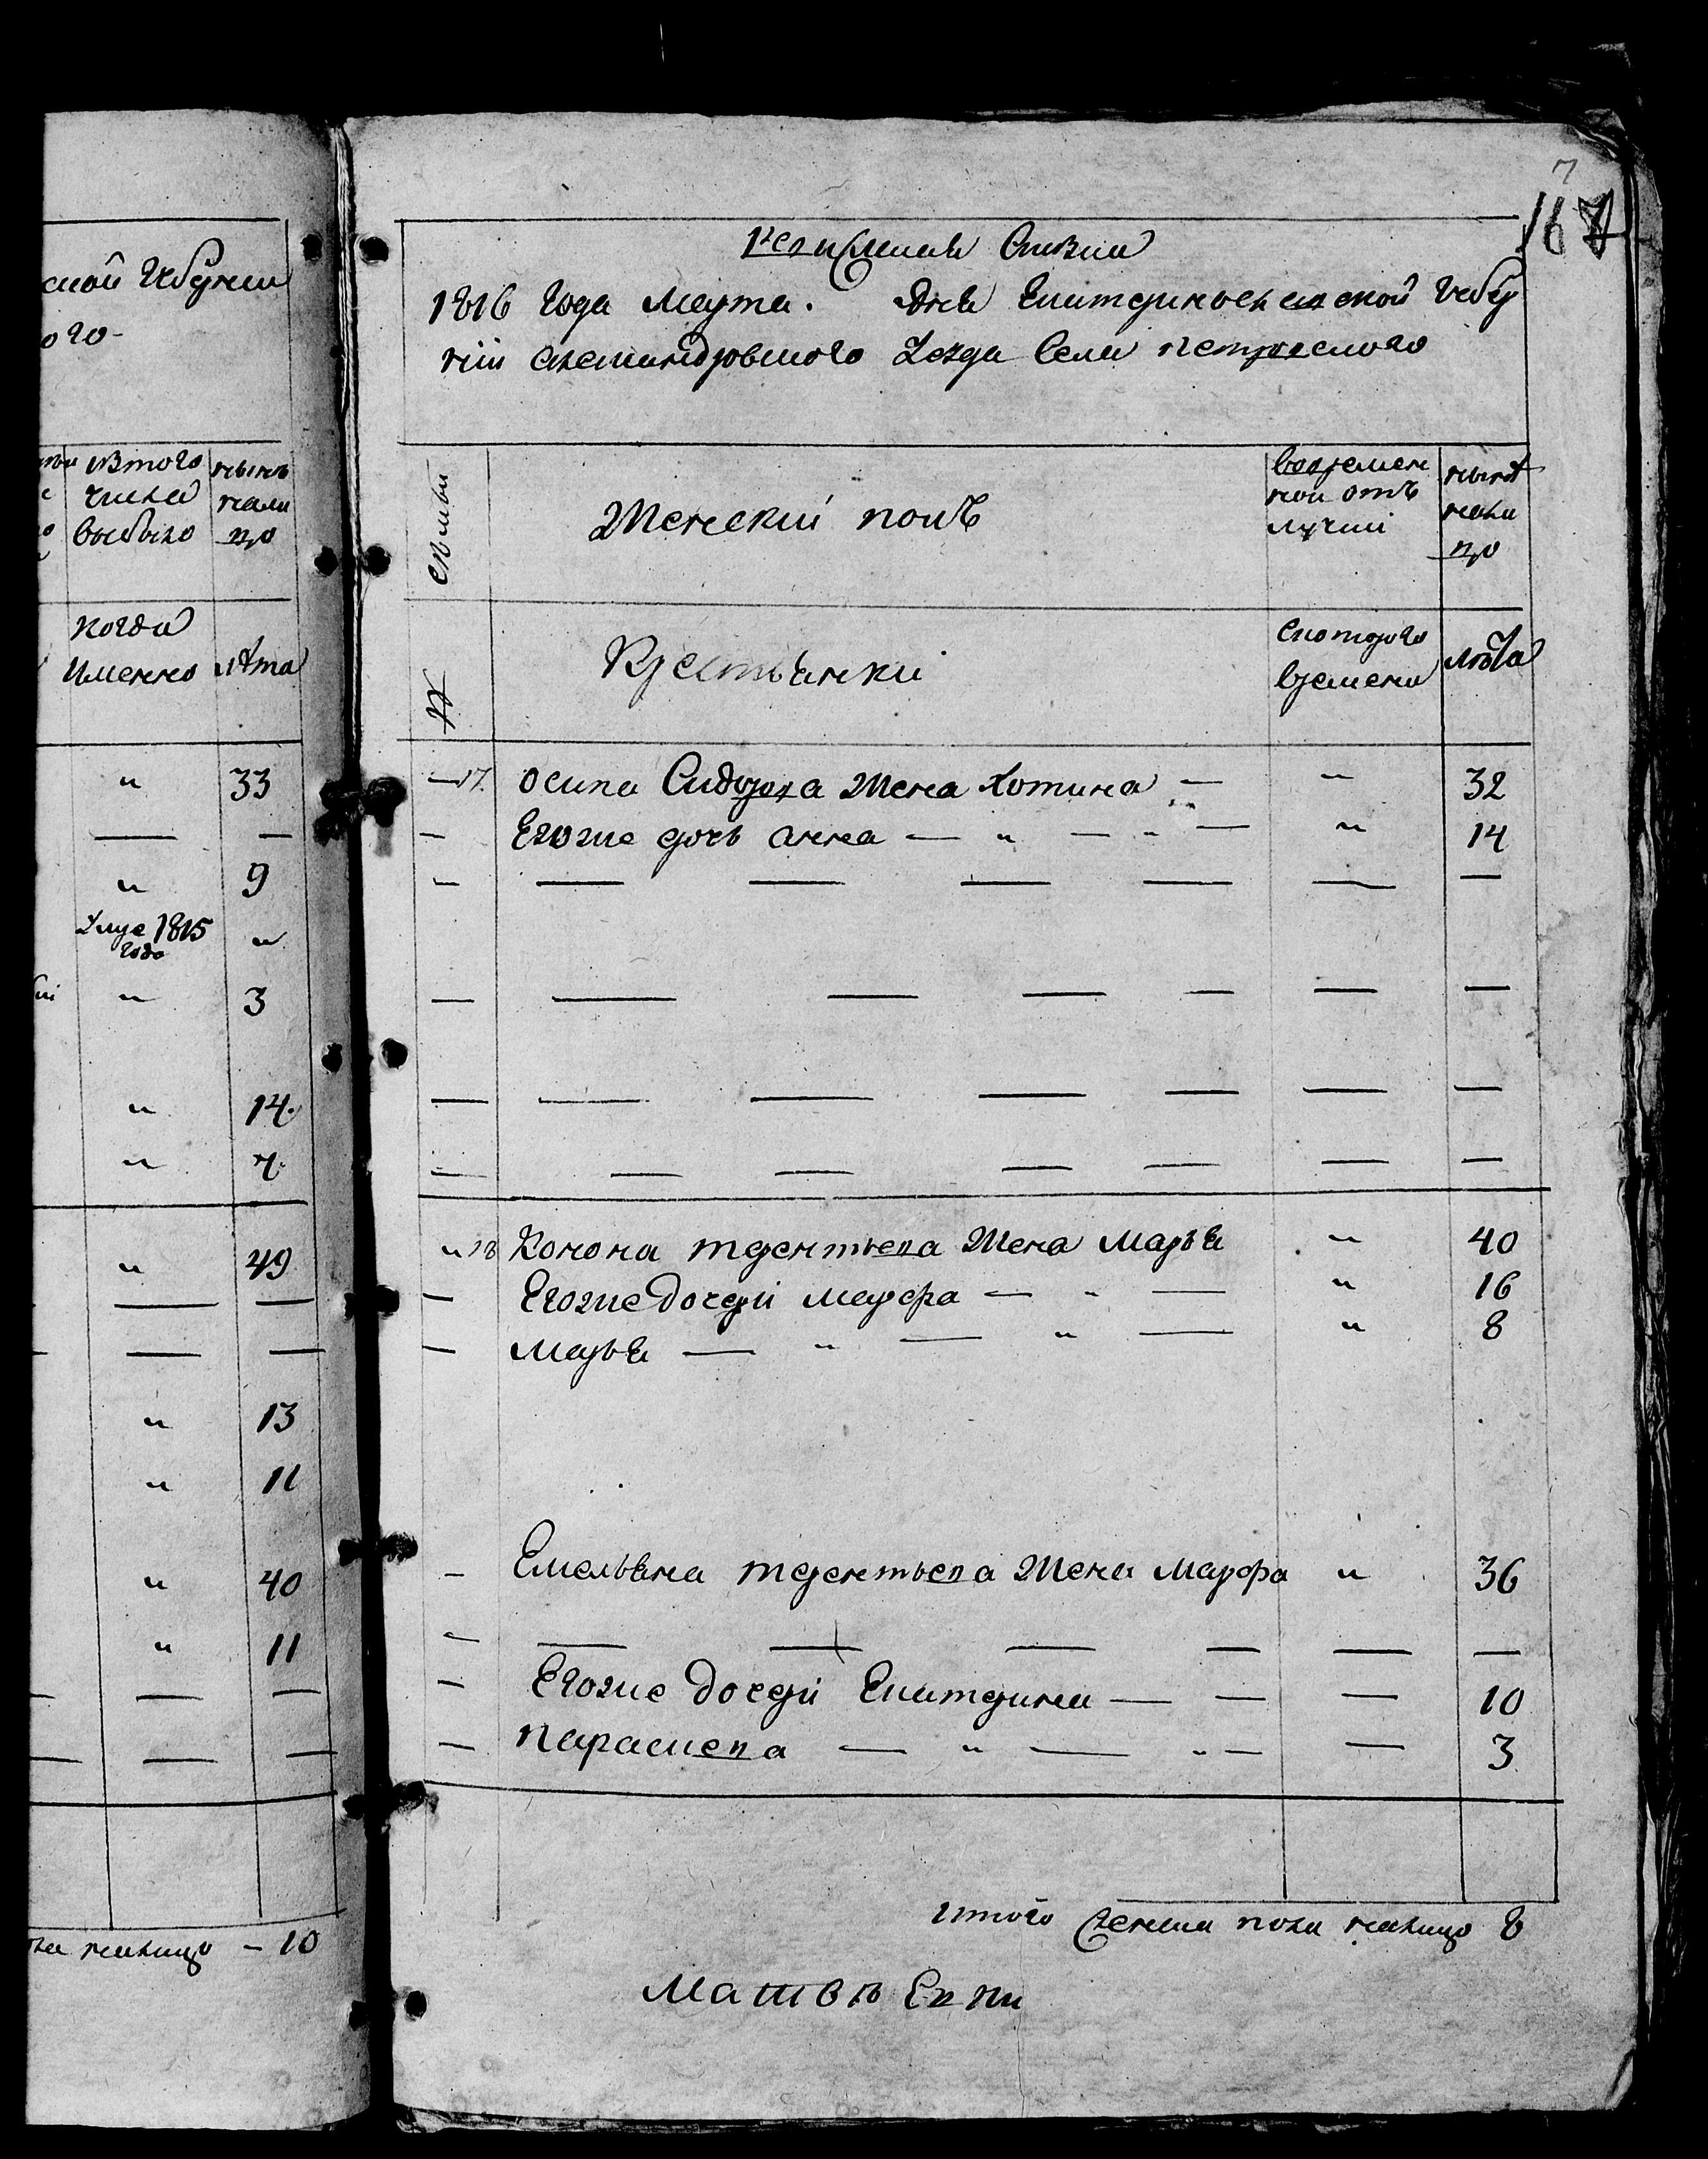 ской Губерни
ого
изтого
числа
выбыло
нынѣ
нали
цо
когда
имянно
лѣта
"
33
— —
" 9
Умре 1815
года
"
" 3
" 14.
" 7.
" 49
— —
— —
" 13
" 11
" 40
" 11
— —
— —
наличо — 10
7
167
Ревизская Сказка
1816 Года Марта. Дня Екатеринославской Губер
нии Александровского Уезда Села Петровского
Семьи
Женский полъ
вовремен
ной отъ
лучки
нынѣ
нали
цо
№
Крестьянки
Скоторого
времени
лѣта
— 17. Осипа Сидорова Жена Хотина — " 32
— Егоже дочь Анна — " — " — " 14
— — — — — — —
— — — — — — —
— — — — — — —
— — — — — — —
" 18 Конона терентьева Жена Марья " 40
— Егоже дочери Марфа — " — " 16
— Марья — " — " — " 8
— Емельяна терентьева Жена Марфа " 36
— — — — — — —
— Егоже дочери Екатерина — — — 10
— Параскева — " — " — — 3
Итого женска пола налицо 8